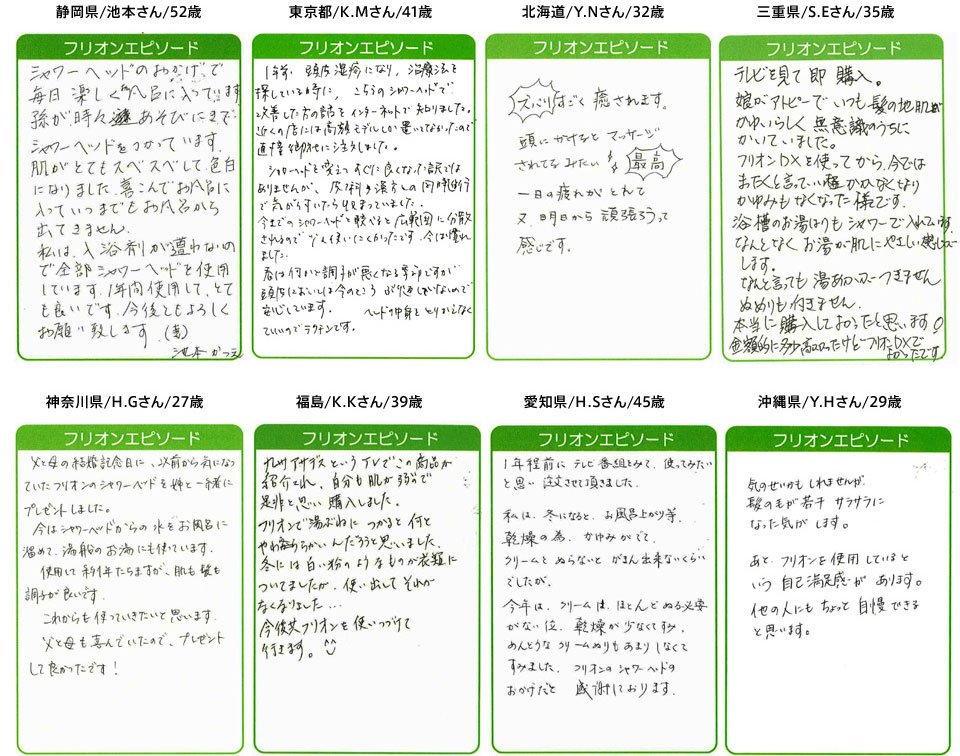 静岡県/池本さん/52歳
フリオンエピソード
シャワーヘッドのおかげで
毎日楽しくお風呂に入っています
孫が時々あそびにまで
シャワーヘッドをつかっています。
肌がとてもスベスベして、色白
になりました。喜こんでお風呂に
入っていつまでもお風呂から
出てきません。
私は、入浴剤が遣わないの
で全部シャワーヘッドを使用
しています。1年間使用して、とて
も良いです。今後ともよろしく
お願い致します。
池本
東京都/K.Mさん/41歳
フリオンエピソード
1年前、頭皮湿疹になり、治療法を
探している時に、こちらのシャワーヘッドで
改善した方の話をインターネットで知りました。
近くの店には高額モデルしか置いてなかったので
直接御社に注文しました。
シャワーヘッドを変えてすぐに良くなった訳では
ありませんが、皮膚科や漢方との同時進行
で気がついたら収まっていました。
今までのシャワーヘッドと較べると広範囲に分散
されるので少々使いにくかったです。今は慣れ
ました。
春は何かと調子が悪くなる季節ですが
頭皮においては今のところぶり返していないので
安心しています。ヘッドの中身をとりかえなく
ていいのでラクチンです。
北海道/Y.Nさん/32歳
フリオンエピソード
ズバリ!すごく癒されます。
頭にかけるとマッサージ
されてるみたいで最高
一日の疲れがとれて
又明日から頑張ろうって
感じです。
三重県/S.Eさん/35歳
フリオンエピソード
テレビを見て即購入。
娘がアトピーでいつも髪の地肌が
かゆいらしく無意識のうちに
かいていました。
フリオンDXを使ってから、今では
まったくと言っていい程かかなくなり
かゆみもなくなった様です。
浴槽のお湯はりもシャワーで入れています。
なんとなくお湯が肌にやさしい感じに
します。
なんと言っても湯あかがつきません
ぬめりも付きません。
本当に購入してよかったと思います。
金額的に多少高かったけどフリオンDXで
よかったです。
神奈川県/H.Gさん/27歳
フリオンエピソード
父と母の結婚記念日に、以前から気になっ
ていたフリオンのシャワーヘッドを姉と一緒に
プレゼントしました。
今はシャワーヘッドからの水をお風呂に
溜めて、湯船のお湯にも使っています。
使用して約1年たちますが、肌も髪も
調子が良いです。
これからも使っていきたいと思います。
父と母も喜んでいたので、プレゼント
して良かったです!
福島/K.Kさん/39歳
フリオンエピソード
九州アサデスというTVでこの商品が
紹介され、自分も肌が弱いので
是非と思い購入しました。
フリオンで湯ぶねにつかると何と
やわらかいんだろうと思いました。
冬には白い粉のようなものが衣類に
ついてましたが、使い出してそれが
なくなりました...
今後もフリオンを使いつづけて
行きます。
愛知県/H.Sさん/45歳
フリオンエピソード
1年程前にテレビ番組をみて、使ってみたい
と思い注文させて頂きました。
私は、冬になると、お風呂上がり等、
乾燥の為、かゆみがでて、
クリームをぬらないとがまん出来ないくらい
でしたが、
今年は、クリームは、ほとんどぬる必要
がない位、乾燥が少なくてすみ、
めんどうなクリームぬりもあまりしなくて
すみました。フリオンのシャワーヘッドの
おかげだと感謝しております。
沖縄県/Y.Hさん/29歳
フリオンエピソード
気のせいかもしれませんが、
髪の毛が若干サラサラに
なった気がします。
あと、フリオンを使用していると
いう自己満足感があります。
他の人にもちょっと自慢できる
と思います。